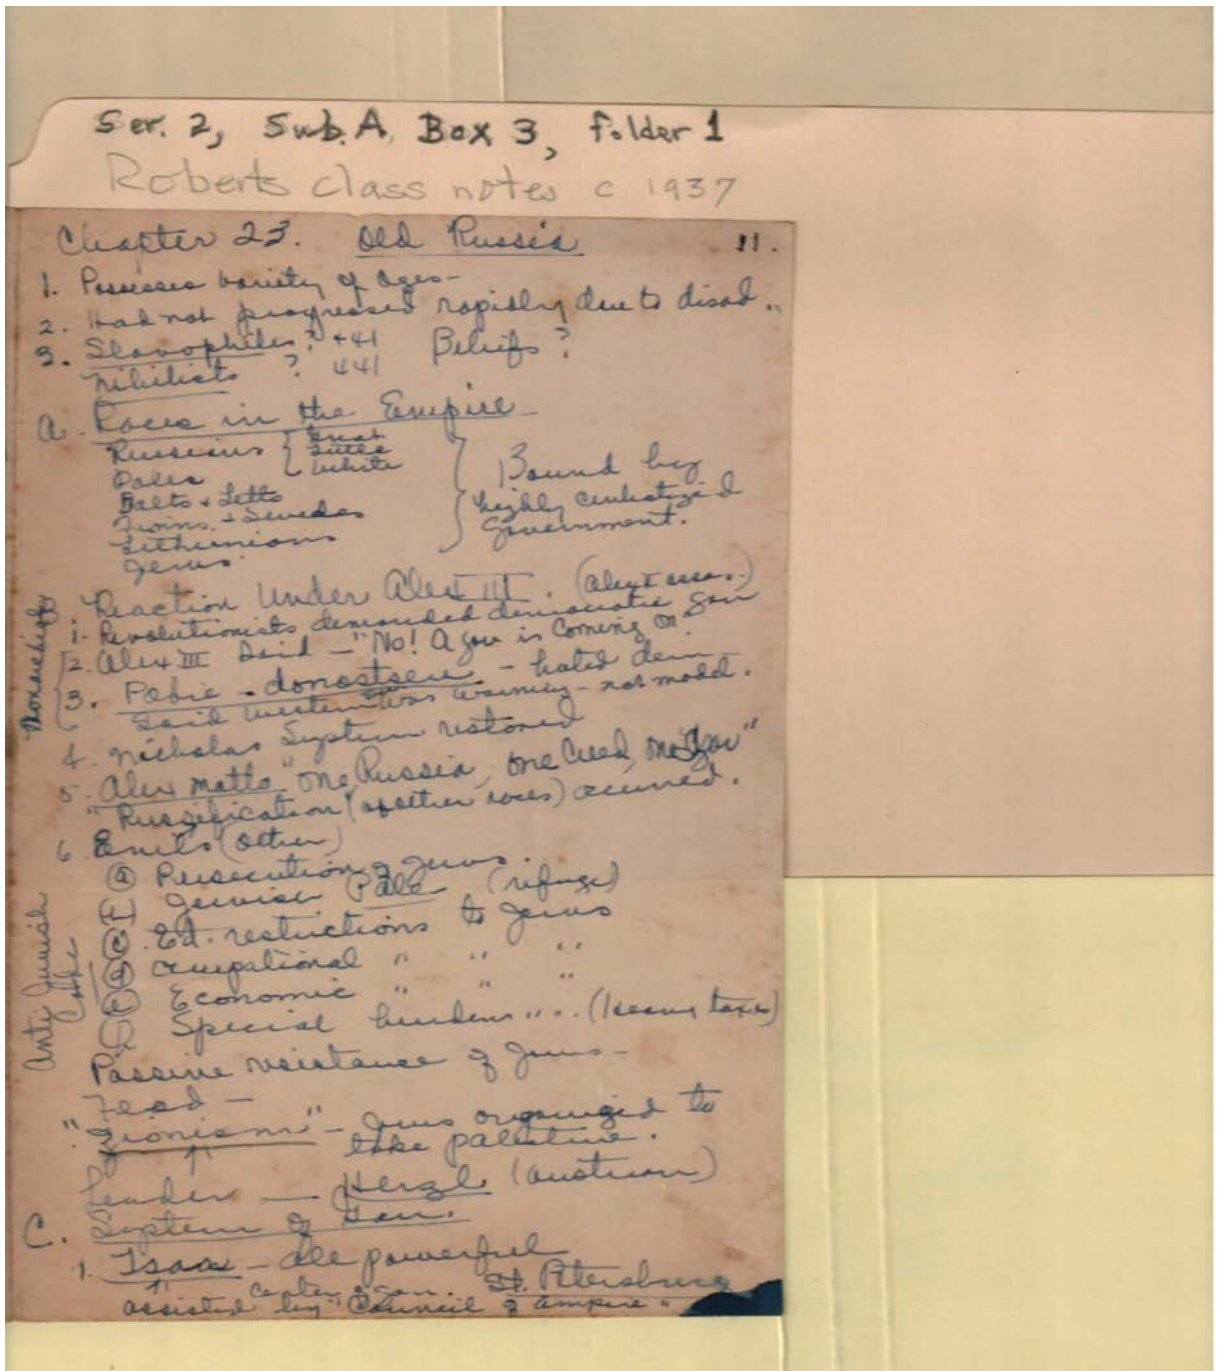 Ser. 2, Sub. A, Box 3, Folder 1
Roberts class notes c 1937
Chapter 23. Old Russia 11.
1. Possesses variety of ages-
2. Had not progressed rapidly due to disad.
3. Slavophiles? 441 Beliefs?
Nihilists ? 441
a. Races in the Empire
Russians { Great
Little
White
Poles
Balts & Letts
Finns & Swedes
Lithunians
Jews.
Bound by
highly centralized
Government.
Reaction Under Alex III. (Alex II assas.)
1. Revolutionists demanded democratic gov
2. Alex III Said - "No! A gov is coming on
3. Pobie-donostsev - hated dem
Said western was warning - not model.
Monarchists
4. Nicholas System restored
5. Alex motto "one Russia, one Creed, one Gov"
"Russification (of other races) occurred.
6. Evils (other)
(a) Persecution of Jews.
Jewish Pale (refuge)
(c) Ed. restrictions to Jews
(d) occupational " " "
(e) Economic " " "
Special burdens " " . (Heavy taxes)
Anti Jewish
Passive resistance of Jews -
"Zionism" - Jews organized to
take palestine.
leader — Herzl (Austrian)
C. System of Gov.
1. Tsar - all powerful
center of gov. St. Petersburg
assisted by "Council of Empire"